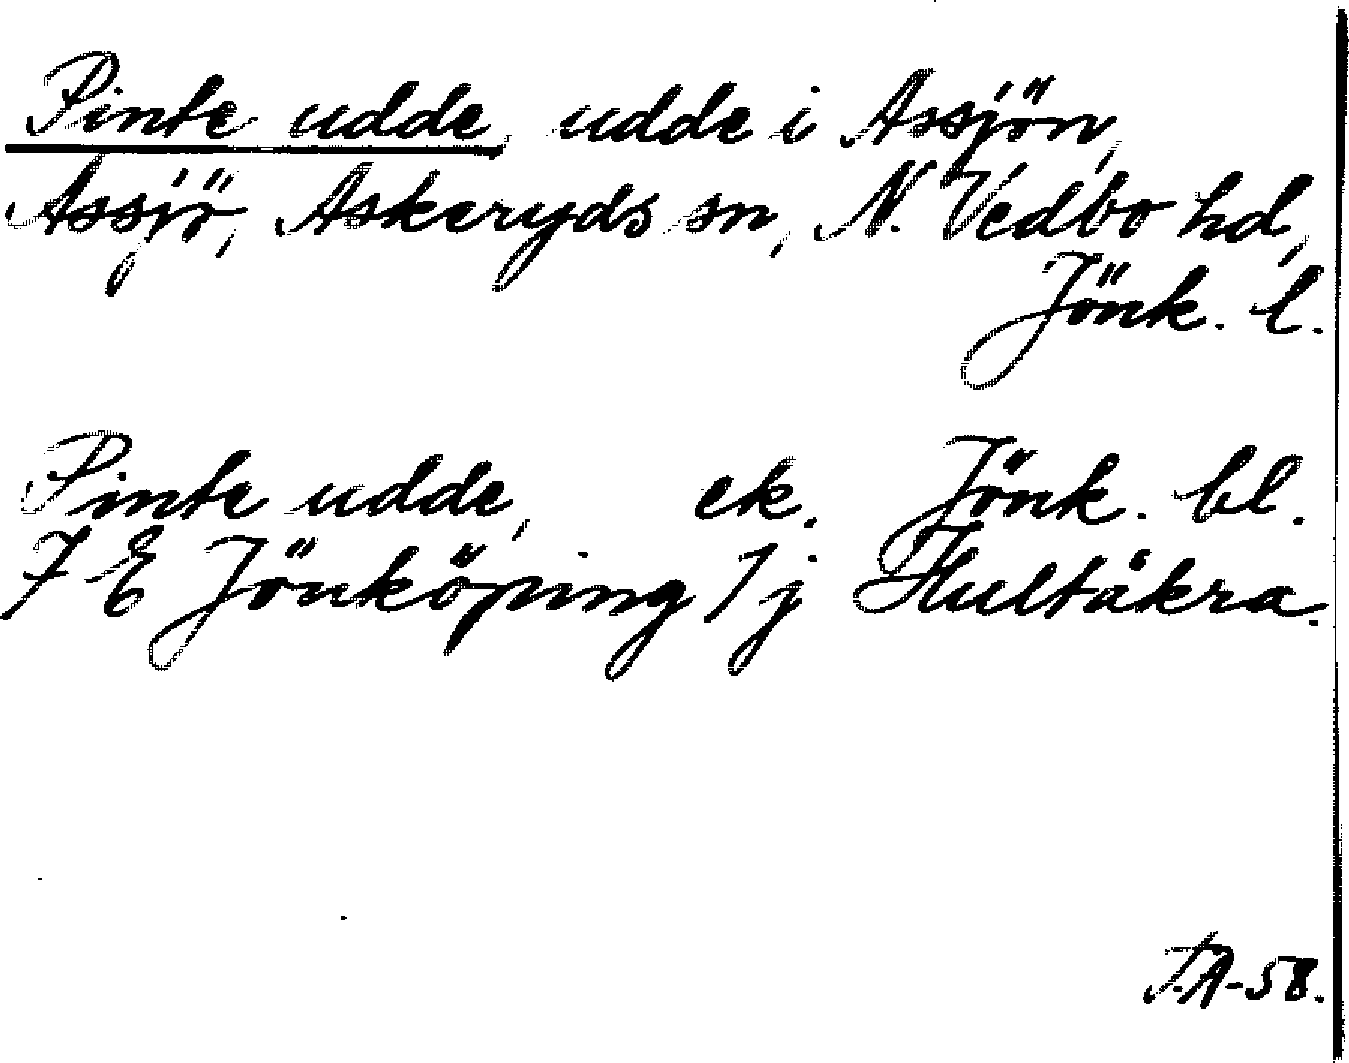 Pinte udde, udde i Assjön,
Assjö, Askeryds sn, N. Vedbo hd,
Jönk. l.
Pinte udde, ek. Jönk. bl.
7 E Jönköping 1 j Hultåkra.
J.A-58.